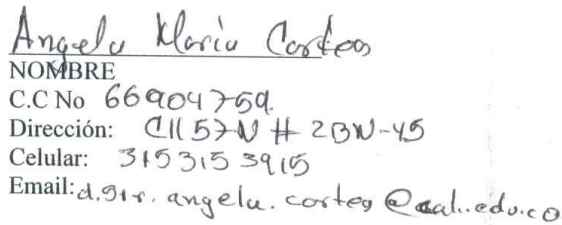 Angela Maria Cortes
NOMBRE
C.C No 66904759.
Dirección: Cll 57N # 2BN-45
Celular: 315 315 3915
Email: d.gir.angela.cortes@cali.edu.co